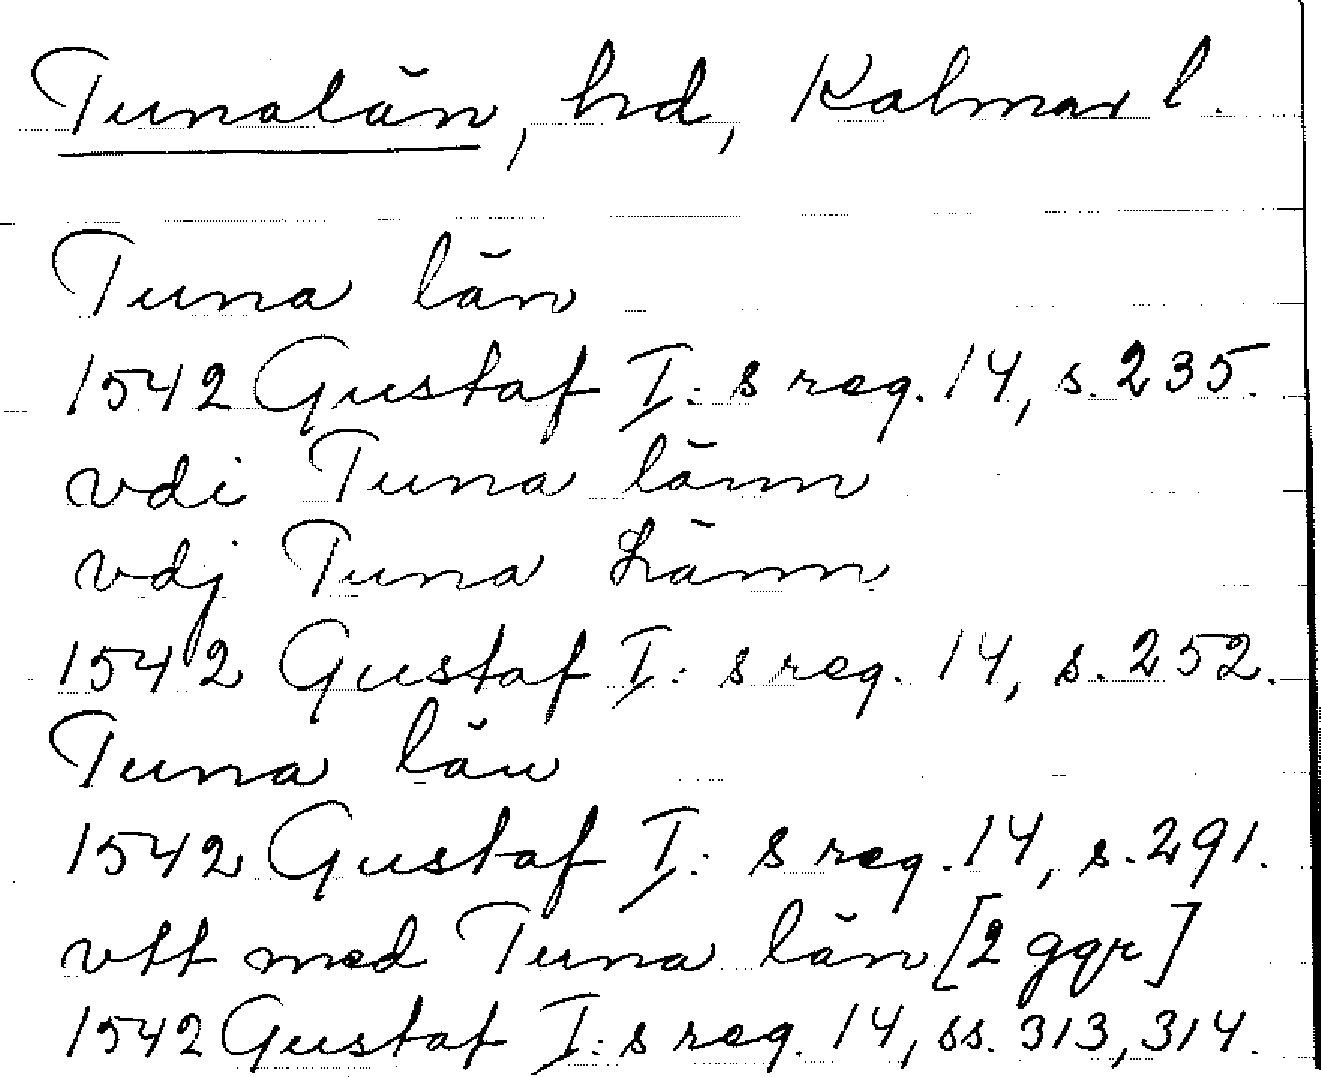 Tunalän, hd, Kalmar l.
Tuna län
1542 Gustaf I:s reg. 14, s. 235.
vdi Tuna länn
vdj Tuna Länn
1542 Gustaf I:s reg. 14, s. 252.
Tuna län
1542 Gustaf I:s reg. 14, s. 291.
vtt med Tuna län [2 ggr]
1542 Gustaf I:s reg. 14, ss. 313, 314.